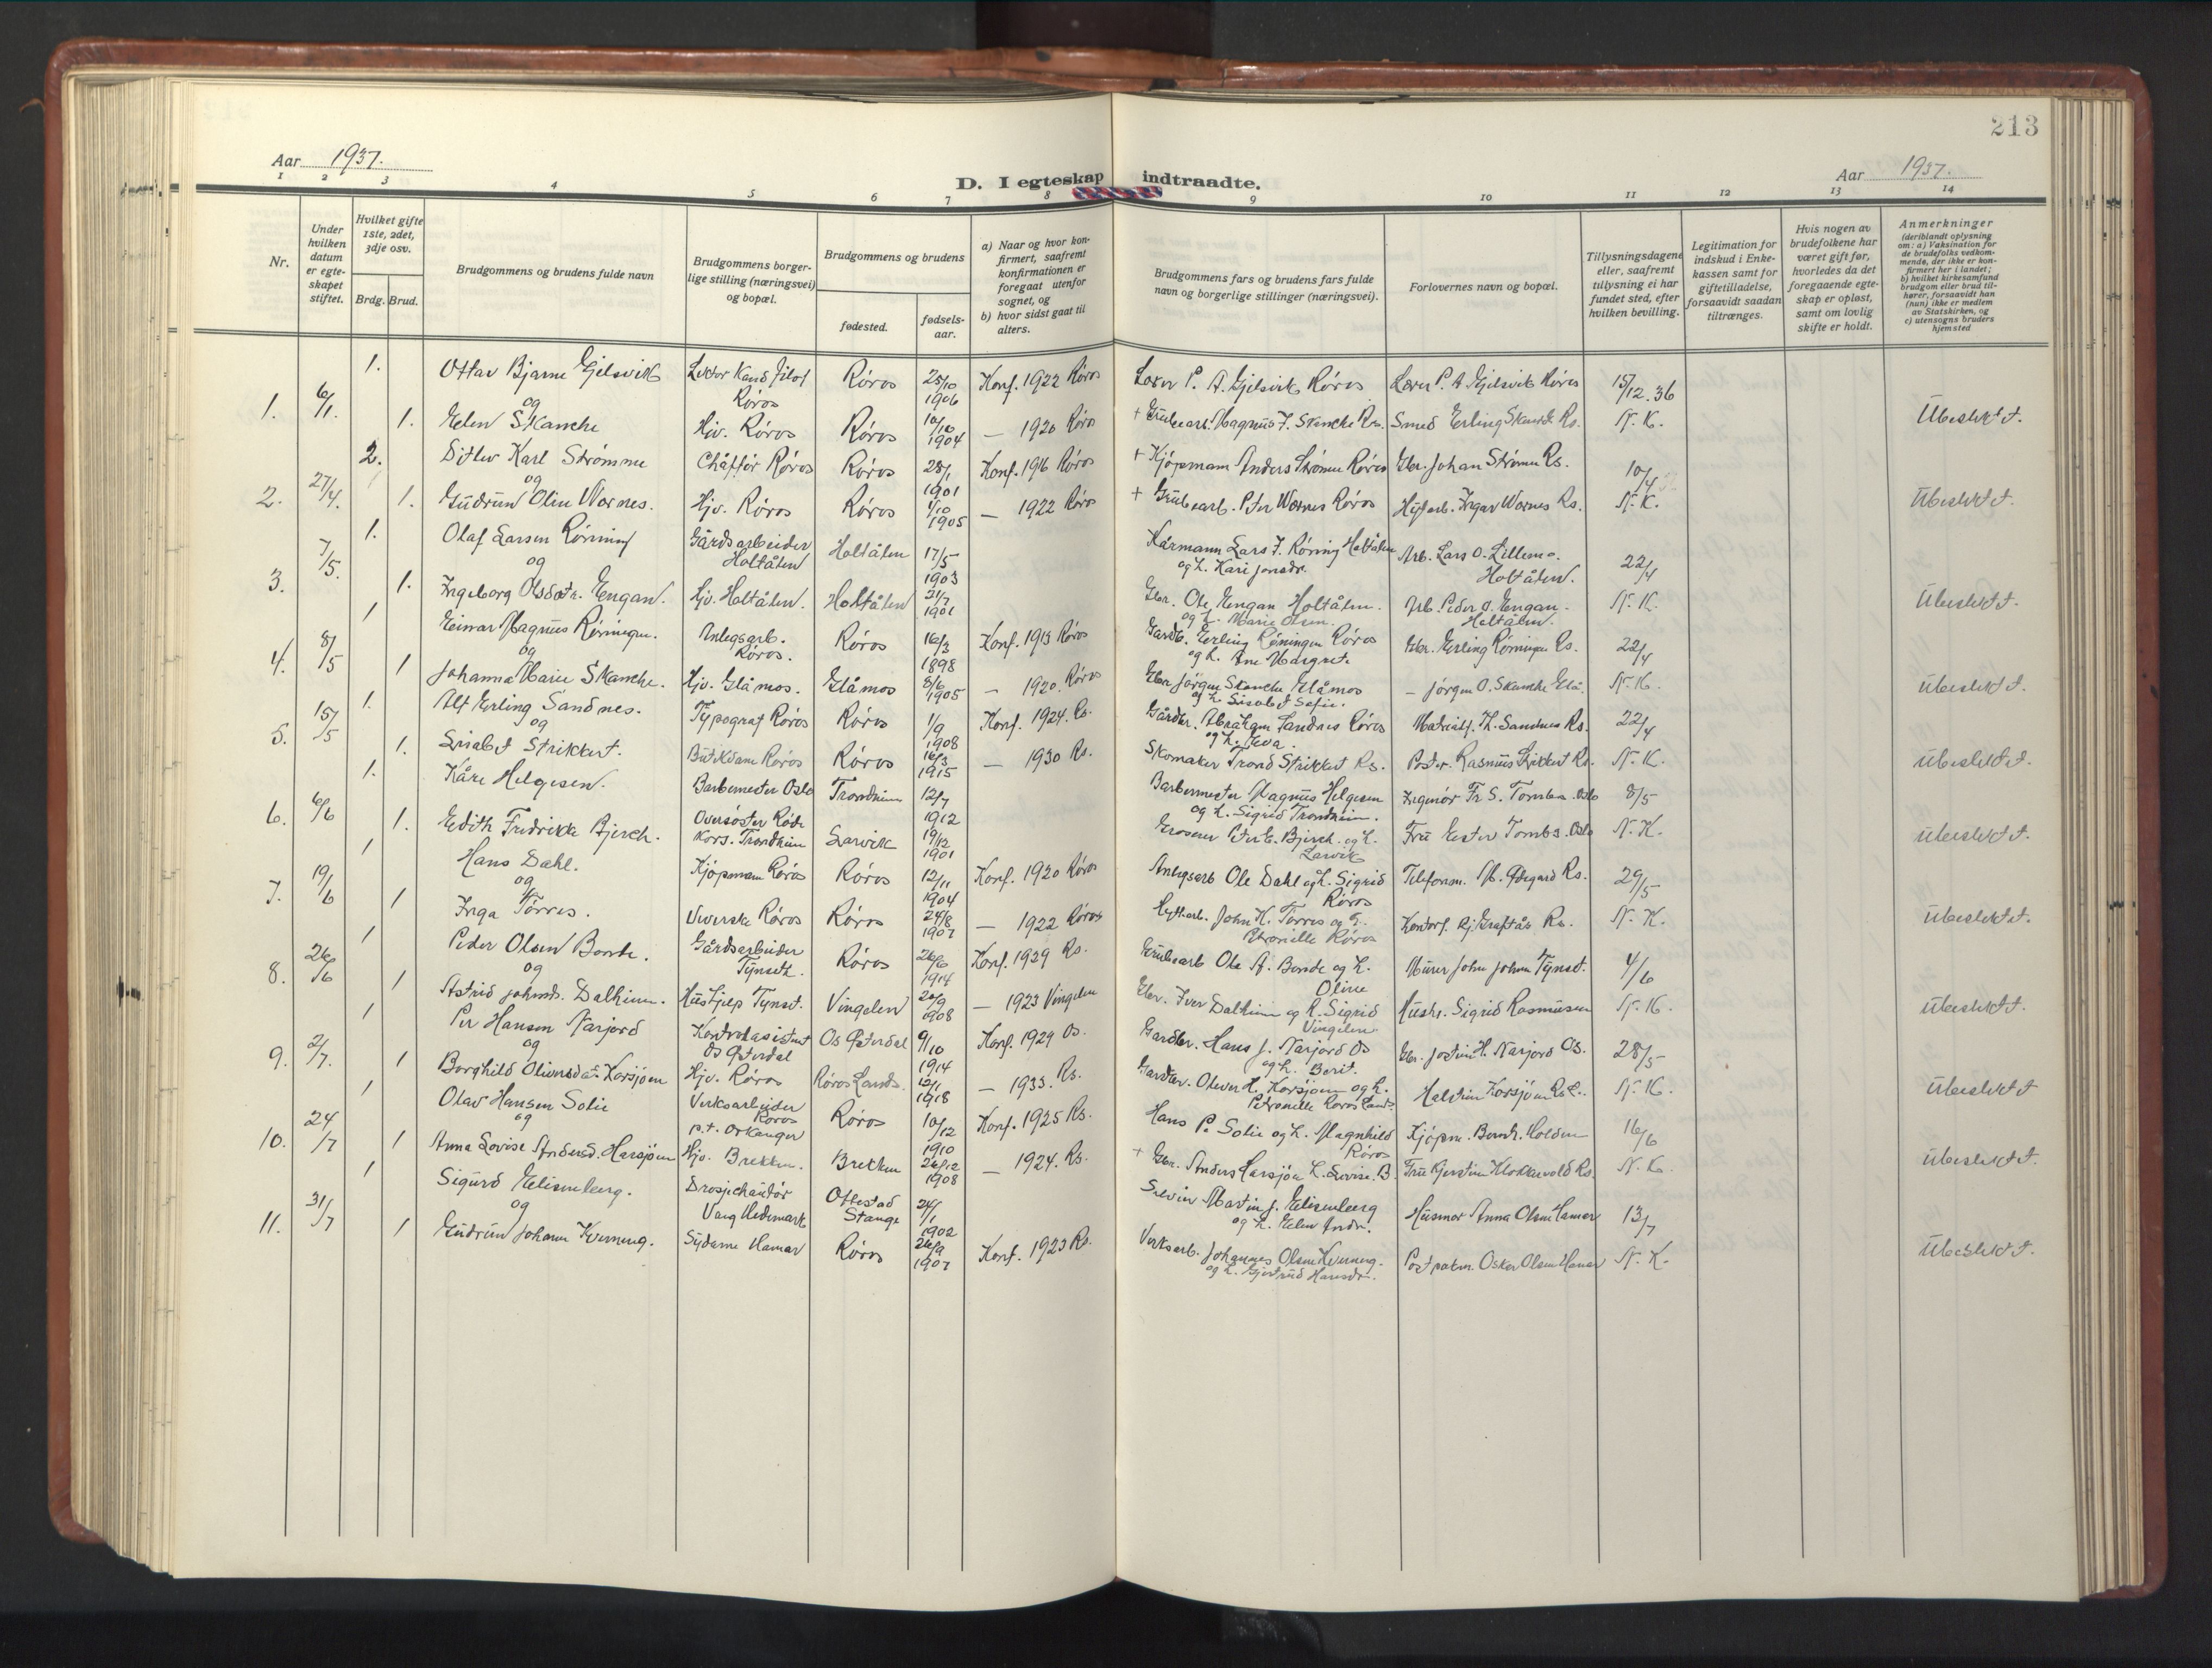 213
Aar 1937.
D. I egteskap indtraadte.
Aar 1937.
1 2 3 4 5 6 7 8 9 10 11 12 13 14
Nr.
Under hvilken datum er egteskapet stiftet.
Hvilket gifte 1ste, 2det, 3dje osv.
Brdg. Brud.
Brudgommens og brudens fulde navn
Brudgommens borgerlige stilling (næringsvei) og bopæl.
Brudgommens og brudens
fødested.
fødselsaar.
a) Naar og hvor konfirmert, saafremt konfirmationen er foregaat utenfor sognet, og
b) hvor sidst gaat til alters.
Brudgommens fars og brudens fars fulde navn og borgerlige stillinger (næringsvei).
Forlovernes navn og bopæl.
Tillysningsdagene eller, saafremt tillysning ei har fundet sted, efter hvilken bevilling.
Legitimation for indskud i Enkekassen samt for giftetilladelse, forsaavidt saadan tiltrænges.
Hvis nogen av brudefolkene har været gift før, hvorledes da det foregaaende egteskap er opløst, samt om lovlig skifte er holdt.
Anmerkninger
(deriblandt oplysning om: a) Vaksination for de brudefolks vedkommende, der ikke er konfirmert her i landet; b) hvilket kirkesamfund brudgom eller brud tilhører, forsaavidt han (hun) ikke er medlem av Statskirken, og c) utensogns bruders hjemsted
1. 6/1. 1. Ottar Bjarne Gjelsvik Lektor Kand filol Røros Røros 25/10 1906 Konf. 1922 Røros Lærer P. A. Gjelsvik Røros Lærer P. A Gjelsvik Røros 15/12.36
og
1. Elen Skancke Hjv. Røros Røros 10/10 1904 — 1920 Røros + Grubearb. Magnus J. Skancke Rs. Smed Erling Skancke Rs. N. K. Ubeslektet.
2. 27/4. 2. Ditlev Karl Strømme Chåffør Røros Røros 28/1 1901 Konf. 1916 Røros + Kjøpmann Anders Strømme Røros Gbr. Johan Strømme Rs. 10/4
og
1. Gudrun Olin Wornes. Hjv. Røros Røros 1/10 1905 — 1922 Røros + Grubearb. Peter Wornes Røros Hytarb. Ingar Wornes Rs. N. K. Ubeslektet.
3. 7/5. 1. Olaf Larsen Røning Gårdsarbeider Holtålen Holtålen 17/5 1903 Kårmann Lars J. Røning Holtålen og h. Kari Jonsdr. Arb. Lars O. Lillemo. Holtålen. 22/4
og
1. Ingeborg Olsdatr. Engan. Hjv. Holtålen. Holtålen 21/7 1901 Gbr. Ole Engan Holtålen. og h. Marie Olsen. Arb. Peder O. Engan. Holtålen. N. K. Ubeslektet.
4. 8/5 1 Einar Magnus Røningen. Anlegsarb. Røros. Røros 16/3 1898 Konf. 1913 Røros Gardb. Erling Røningen Røros og h. Ane Margrete Gbr. Erling Røningen Rs. 22/4
og
1 Johanna Marie Skancke. Hjv. Glåmos. Glåmos 8/6 1905 — 1920. Røros Gbr Jørgen Skancke Glåmos og h. Lisabet Sofie. — Jørgen O. Skancke Glå. N. K. Ubeslektet.
5. 15/5 1. Alf Erling Sandnes. Typograf Røros Røros 1/9 1908 Konf. 1924. Rs. Gårdbr. Abraham Sandnes Røros og h. Eva. Th. Sandnes Rs. 22/4
og
1. Lisabet Strikkert. Butikdame Røros Røros 16/3 1915 — 1930 Rs. Skomaker Trond Strikkert Rs. Poster. Rasmus Strikkert Rs. N. K. Ubeslektet.
6. 6/6 1. Kåre Helgesen. Barbermester Oslo Trondheim 12/7 1912 Barbermester Magnus Helgesen og h. Sigrid Trondheim. Ingeniør Fr S. Tombs. Oslo 8/5
1. Edith Fredrikke Bjerch. Oversøster Røde Kors. Trondheim Larvik 19/12 1901 Grosserer Peter E. Bjerch. og h. Larvik Fru Ester Tombs. Oslo N. K. Ubeslektet.
7. 19/6 1 Hans Dahl. Kjøpmann Røros Røros 12/11 1904 Konf. 1920 Røros Anlegsarb Ole Dahl og h. Sigrid Røros Telefonm. M. Ødegard Rs. 29/5
og
1 Inga Tørres. Veverske Røros Røros 24/8 1907 — 1922 Røros Hyttarb. John K. Tørres og h. Petronelle Røros Kontorf. Rj Graftås Rs. N. K. Ubeslektet.
8. 26/6 1 Peder Olsen Borde. Gårdsarbeider Tynset. Røros 26/6 1914 Konf. 1929 Rs. Grubearb Ole A. Borde og h. Oline Murer John Johnsen Tynset. 4/6
og
1 Astrid Johnsdr. Dalheim. Hushjelp Tynset. Vingelen 20/9 1908 — 1923 Vingelen Gbr. Iver Dalheim og h. Sigrid Vingelen Hushr. Sigrid Rasmussen N. K. Ubeslektet.
9. 2/7. 1 Per Hansen Narjord Kontrolasistent Os Østerdal Os Østerdal 9/10 1914 Konf. 1929 Os. Gardbr. Hans J. Narjord Os og h. Berit. Gbr. Jostein H. Narjord Os. 28/5
og
1 Borghild Oliversdat. Korsjøen Hjv. Røros Røros Lands. 12/1 1918 — 1933. Rs. Gardbr. Oliver H. Korsjøen og h. Petronelle Røros Lands. Halstein Korsjøen Rs. L. N. K. Ubeslektet
10. 24/7 1 Olav Hansen Solie Verksarbeider Røros p.t. Orkanger Røros 10/12 1910 Konf. 1925 Rs. Hans P. Solie og h. Magnhild Røros Kjøpm. Bernh. Holden 16/6
og
1 Anna Lovise Andersd. Harsjøen Hjv. Brekken. Brekken 26/12 1908 — 1924. Rs. + Gbr. Anders Harsjøen h. Lovise. B. Fru Kjerstin Klokkervold Rs. N. K. Ubeslektet.
11. 31/7 1 Sigurd Elisenberg. Drosjechaufør Vang Hedemark Ottestad Stange 24/1 1902 Martin J. Elisenberg og h. Elen Andr. Husmor Anna Olsen Hamar 13/7
og
1 Gudrun Johanne Kverneng. Sydame Hamar Røros 26/9 1907 Konf. 1923 Rs. Verksarb. Johannes Olsen Kverneng. og h. Gjertrud Hansdr. Postpakm. Oskar Olsen Hamar N. K. Ubeslektet.